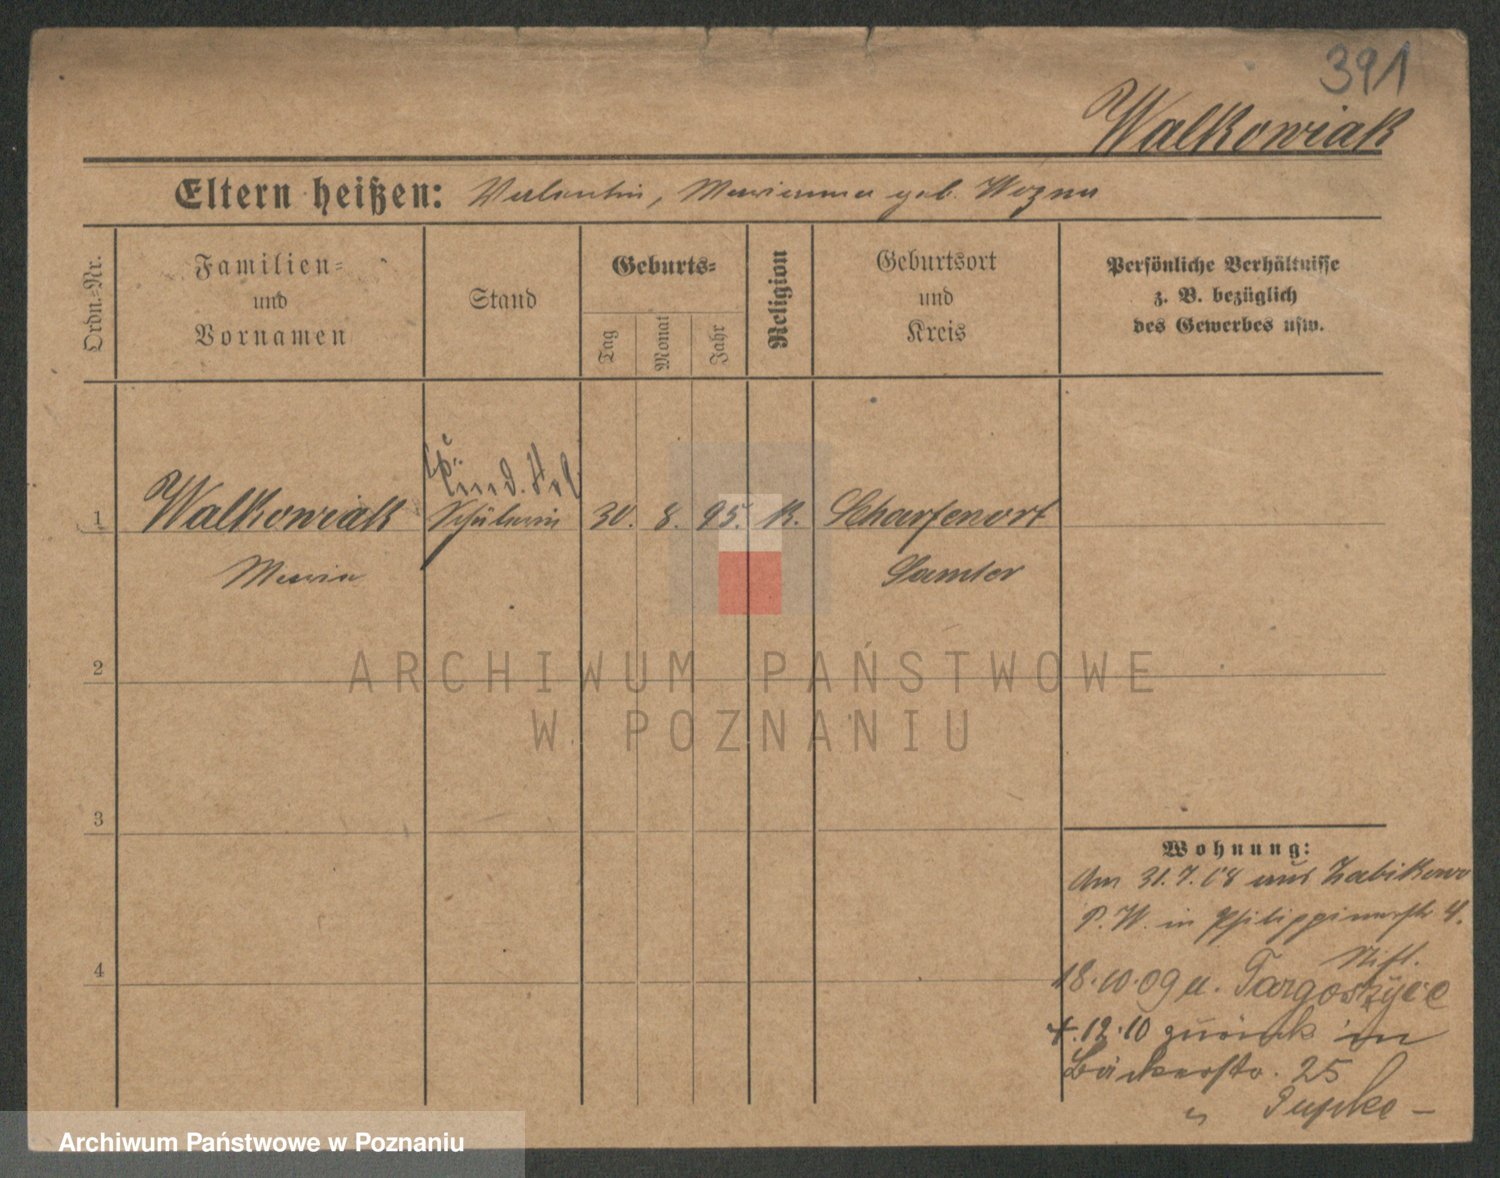 391
Walkowiak
Eltern heißen: Valentin, Marianna geb. Wozna
Ordn.-Nr.
Familien-
und
Vornamen
Stand
Geburts-
Tag
Monat
Jahr
Religion
Geburtsort
und
Kreis
Persönliche Verhältnisse
z. B. bezüglich
des Gewerbes usw.
1
Walkowiak Schülerin 30. 8. 95. K. Scharfenort
Maria Samter
2
3
4
Wohnung:
Am 31.7.08 aus Zabikowo
P. W. in Philippinenstr 4.
18.10.09 n. Targoszyce
4.12.10 zurück in
Bäckerstr. 25
ARCHIWUM PAŃSTWOWE
W POZNANIU
Archiwum Państwowe w Poznaniu